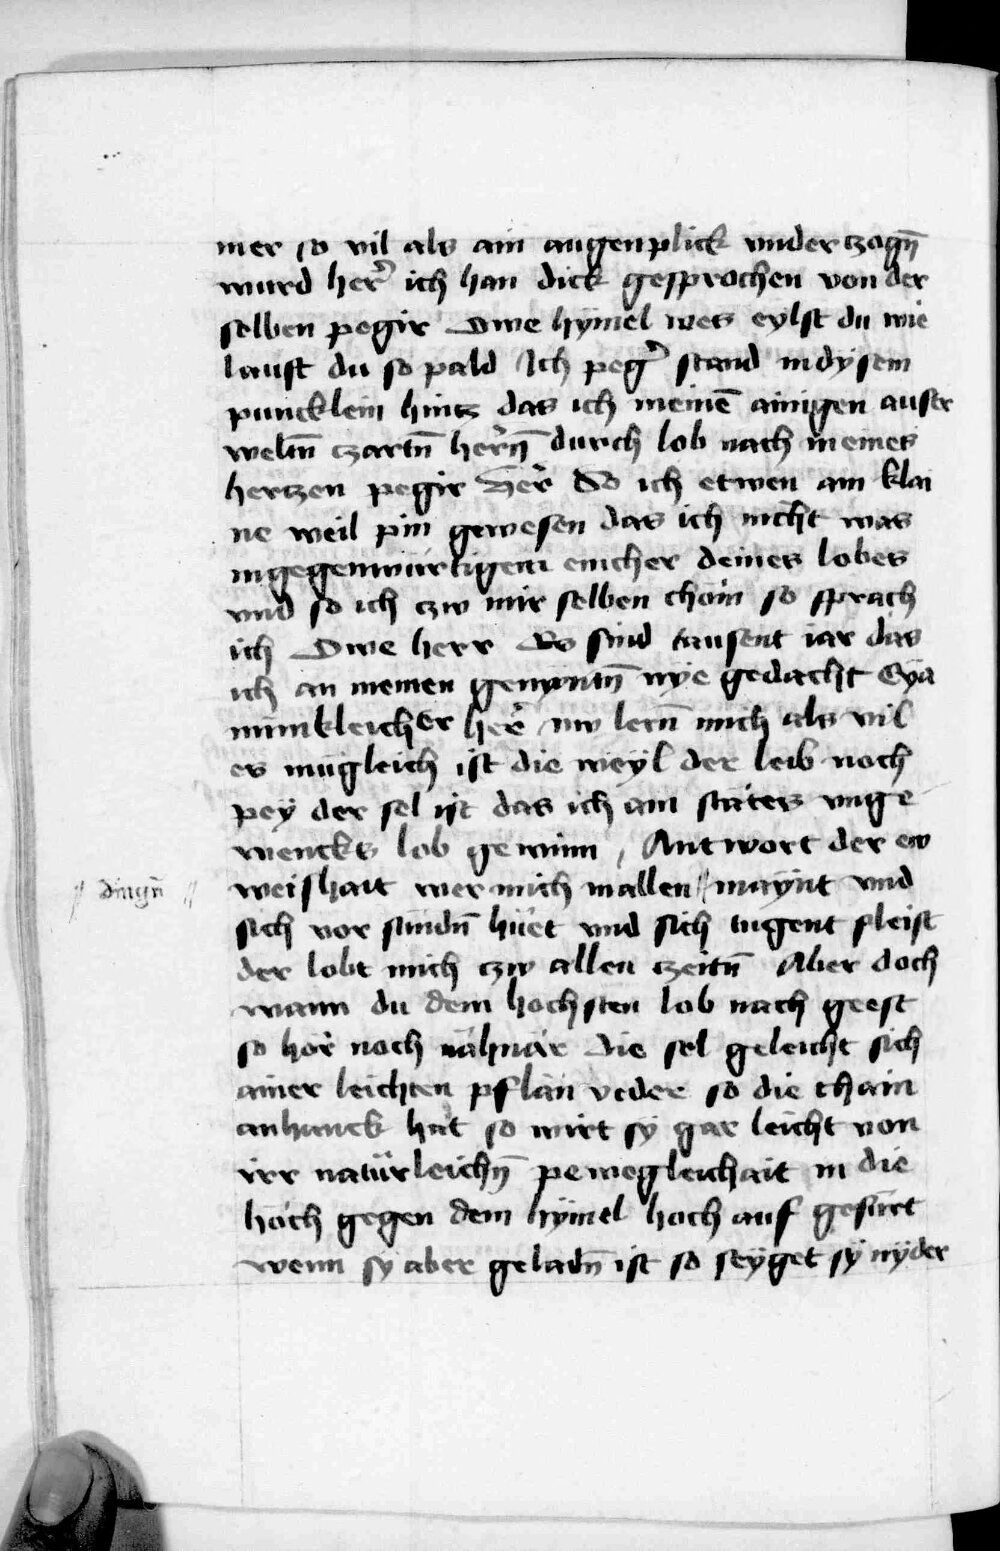 mer so vil als ain augenplick vnderczogn̄
wurd her̄ ich han dick gesprochen von der
selben pegir Owe hymel wes eylst du wie
laufst du so pald Ich peḡ stand in dysem
puncklein hintz das ich meinē ainigen auser
weltn̄ czartn̄ herrn̄ durch lob nach meines
hertzen pegir Her̄ So ich etwen ain klai
ne weil pin gewesen das ich nicht was
in gegenwürtigem eincher deines lobes
vnd so ich czw mir selben chom so sprach
ich Owe herr Es sind tausent iar das
ich an meinen gemyntn̄ nye gedacht Eya
minnkleicher her̄ nw lern̄ mich als vil
es mugleich ist die weyl der leib noch
pey der sel ist das ich ain stätes vnge
wencks lob gewinn , Antwort der ew
weishait wer mich in allen // maynt vnd
// dingn̄ //
sich vor sündn̄ hüet vnd sich tugent fleist
der lobt mich czw allen czeitn̄ Aber doch
wann du dem hochsten lob nach geest
so hör noch nähnär Die sel geleicht sich
ainer leichten pflän veder so die chain
anhanck hat so wirt sy gar leicht von
irr natürleichn̄ pewegleichait in die
höch gegen dem hymel hoch auf gefürt
wenn sy aber geladn̄ ist so seyget sy nyder